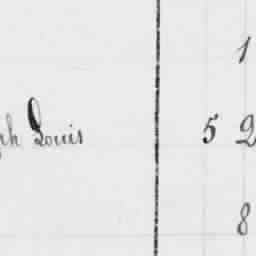 1
ph Louis 5 2
8